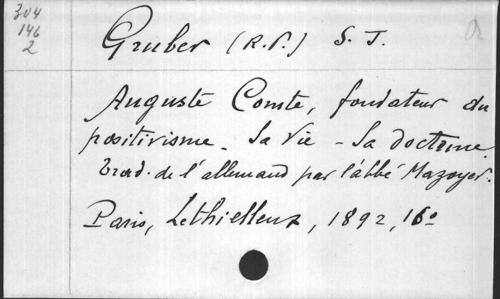 304
146
2
Gruber (R.P.) S. J.
Auguste Comte, fondateur du
positivisme. Sa vie - Sa doctrine.
Trad. de l'allemand par l'abbé Mazoyer.
Paris, Lethielleux, 1892, 16º